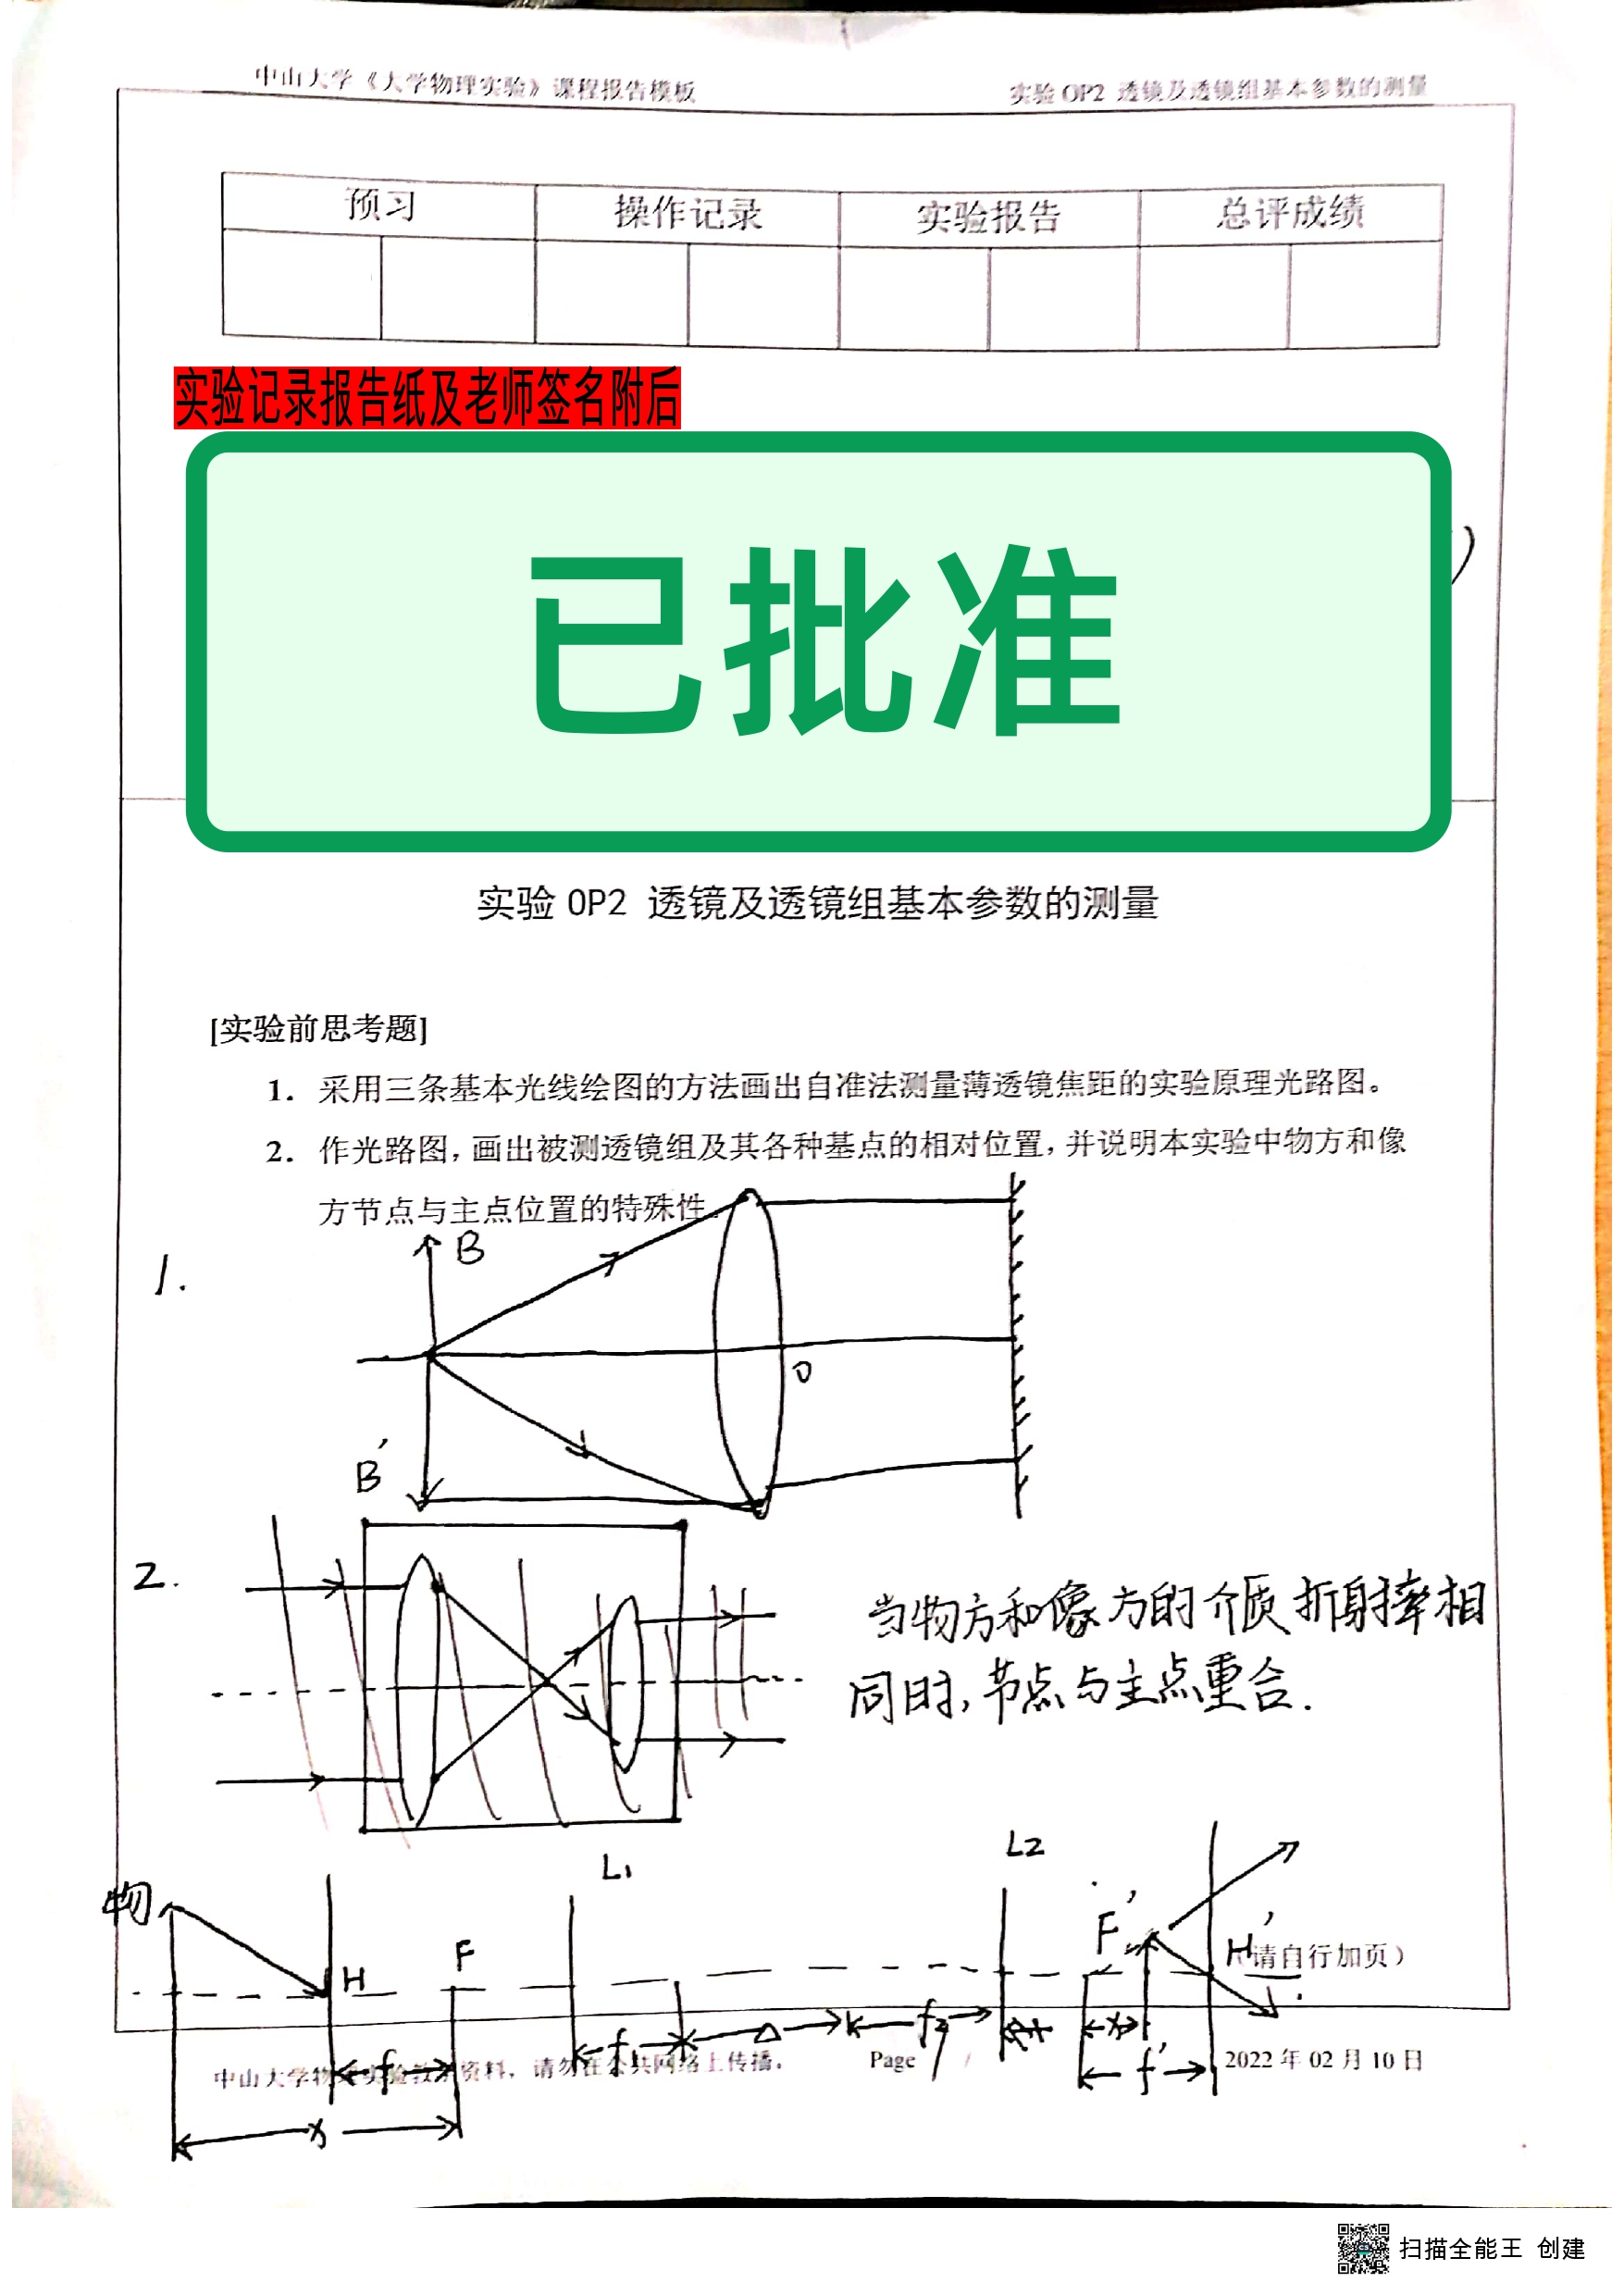 中山大学《大学物理实验》课程报告模板
实验 OP2 透镜及透镜组基本参数的测量
预习 操作记录 实验报告 总评成绩
实验记录报告纸及老师签名附后
已批准
实验 OP2 透镜及透镜组基本参数的测量
[实验前思考题]
1. 采用三条基本光线绘图的方法画出自准法测量薄透镜焦距的实验原理光路图。
2. 作光路图，画出被测透镜组及其各种基点的相对位置，并说明本实验中物方和像
方节点与主点位置的特殊性。
1.
B
O
B'
2.
当物方和像方的介质折射率相
同时，节点与主点重合.
L1
L2
物
H
F
F'
H'
（请自行加页）
f1
Δ
f2
x'
f
f'
x
中山大学物理实验教学资料，请勿在公共网络上传播。
Page
2022 年 02 月 10 日
扫描全能王 创建